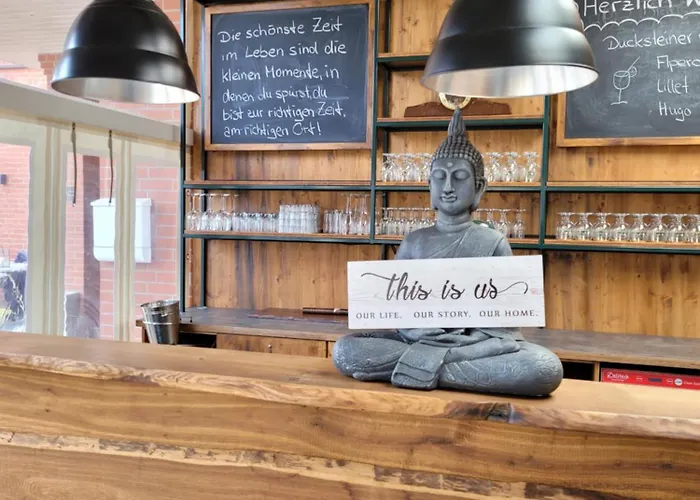 Die schönste Zeit
im Leben sind die
kleinen Momente, in
denen du spürst, du
bist zur richtigen Zeit,
am richtigen Ort!
Herzlich
Ducksteiner
Lillet
Hugo
this is us
OUR LIFE. OUR STORY. OUR HOME.